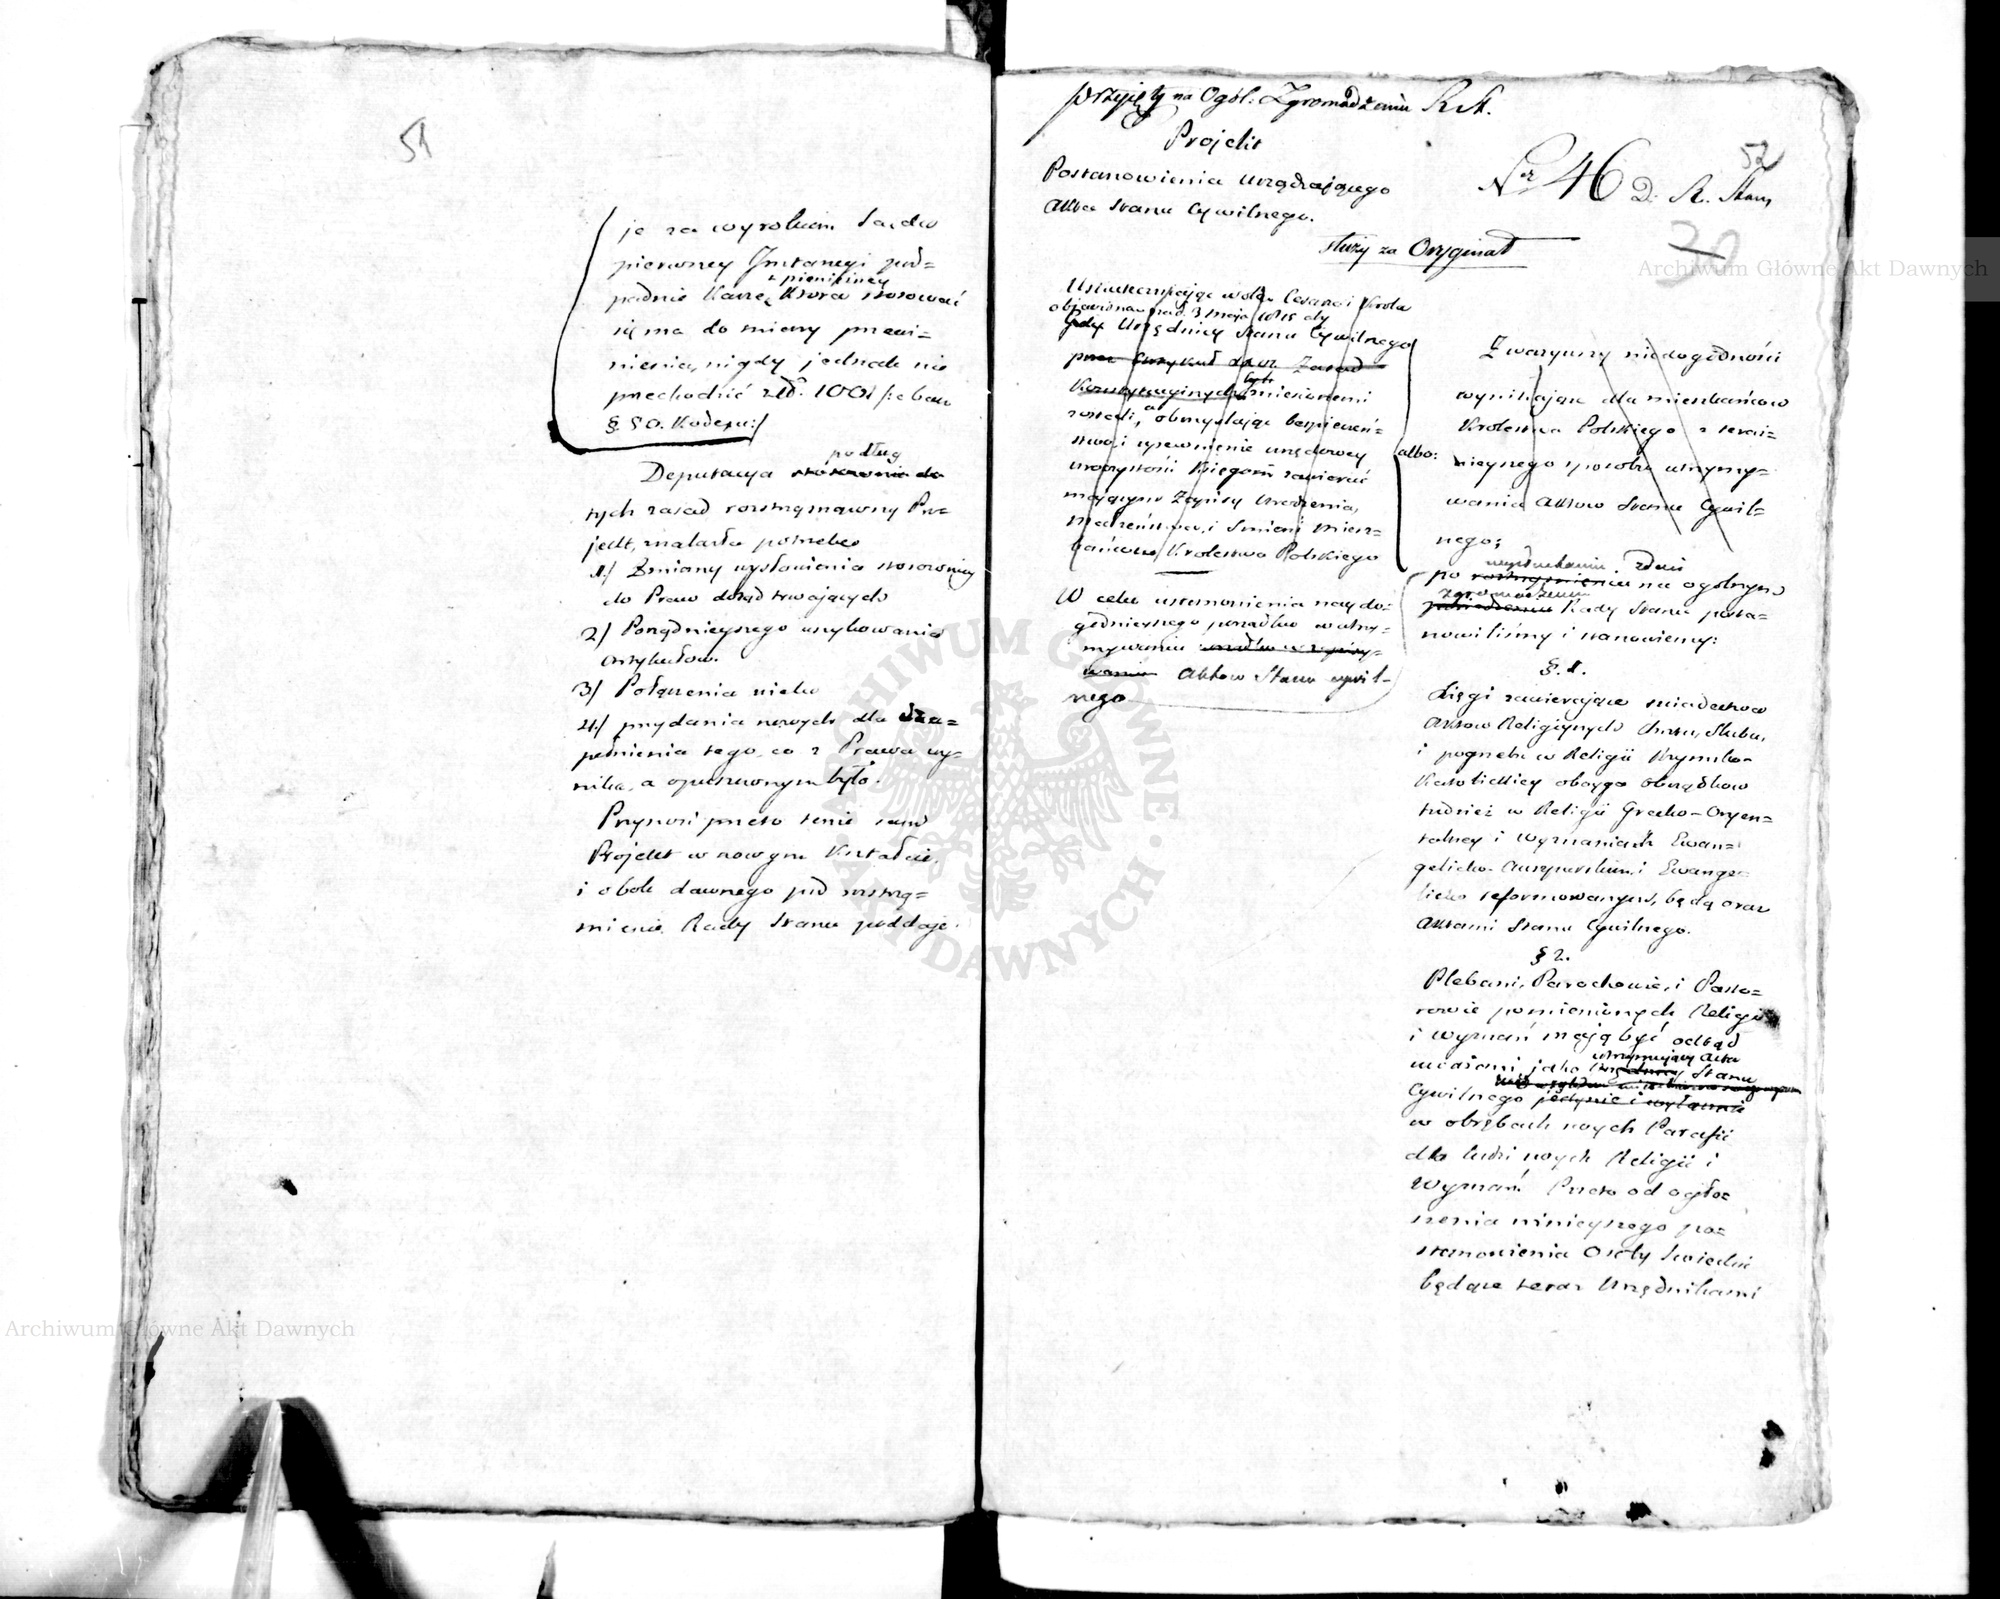 51
je za wyrokiem Sądu
pierwszey Instancyi pod=
z pieniężney
padnie Karze, Ktora stosować
się ma do miary przewi=
nienia, nigdy jednak nie
przechodzić złł. 100 /:obacz
§ 50. Kodexu:/
podług
Deputacya stosownie do
tych zasad roztrząsnąwszy Pro=
jekt, znalazła potrzebę
1./ Zmiany wysłowienia stosowniey
do Praw dotąd trwaiących
2/ Porządnieyszego uszykowania
Artykułow.
3/ Połączenia wielu
4/ przydania nowych dla Uzu=
pełnienia tego, co z Prawa wy=
nika, a opuszczonym było.
Przynosi przeto tenże sam
Projekt w nowym Kształcie,
i obok dawnego pod roztrzą=
śnienie Rady Stanu poddaje.
przyięty na Ogól: Zgromadzeniu R.S.
Projekt
Postanowienia urządzaiącego
Akta Stanu Cywilnego.
52
Nr 46 D. R. Stanu
służy za Oryginał
30
Uskuteczniając wolą Cesarza i Krola
objawioną pod d. 3 maja 1815 aby
gdy Urzędnicy Stanu Cywilnego
przez Artykuł Zasad
Konstytucyinych byli zmienionemi
zostali, a obmyślając bezpieczeń=
stwo i zapewnienie urzędowey
uroczystości Księgom zawierać
mającym Zapisy Urodzenia,
Małżeństwa, i Śmierci Miesz=
kańcow Krolestwa Polskiego
W celu ustanowienia naydo=
godnieyszego porządku w utrzy=
mywaniu
Aktow Stanu cywil=
nego
albo:
Zważywszy niedogodności
wynikające dla mieszkańcow
Krolestwa Polskiego z teraź=
nieyszego sposobu utrzymy=
wania Aktow Stanu Cywil=
nego;
wysłuchaniu zdań
po roztrząśnieniu na ogolnym
zgromadzeniu
posiedzeniu Rady Stanu posta=
nowiliśmy i stanowiemy:
§. 1.
Księgi zawierające świadectwa
Aktow Religiynych Chrztu, Slubu,
i pogrzebu w Religii Rzymsko-
Katolickiey oboyga obrządkow
tudzież w Religii Grecko-Oryen=
talney i Wyznaniach Ewan=
gelicko-Auszpurskim i Ewange=
licko reformowanym, będą oraz
Aktami Stanu Cywilnego.
§ 2.
Plebani, Parochowie, i Pasto=
rowie pomienionych Religii
i wyznań mają być odtąd
utrzymujący Akta
uważani jako Urzędnicy Stanu
Cywilnego jedynie i wyłącznie
w obrębach swych Parafii
dla ludzi swych Religii i
Wyznań. Przeto od ogło=
szenia ninieyszego po=
stanowienia Osoby Swieckie
będące teraz Urzędnikami
Archiwum Główne Akt Dawnych
Archiwum Główne Akt Dawnych
ARCHIWUM GŁÓWNE AKT DAWNYCH